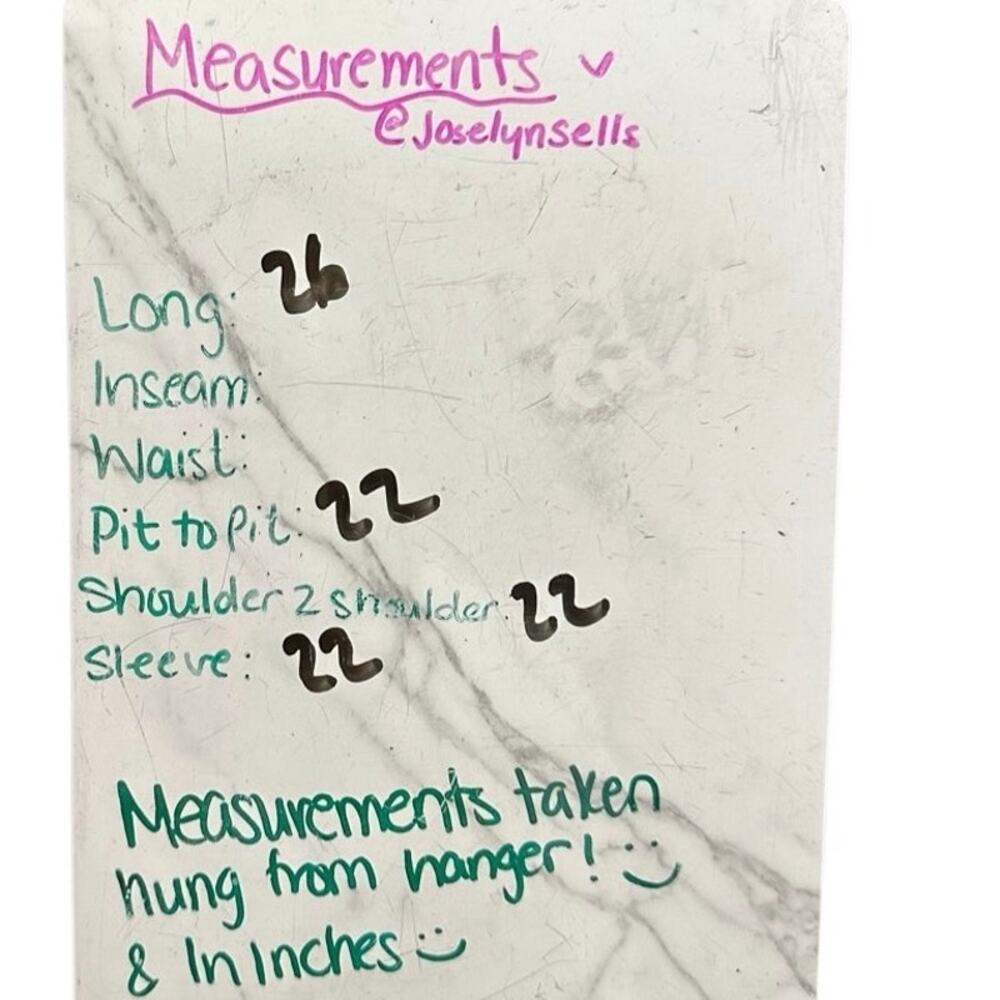 Measurements
@Joselynsells
Long: 26
Inseam:
Waist:
Pit to Pit: 22
Shoulder 2 shoulder: 22
Sleeve: 22
Measurements taken
hung from hanger! :)
& In Inches :)